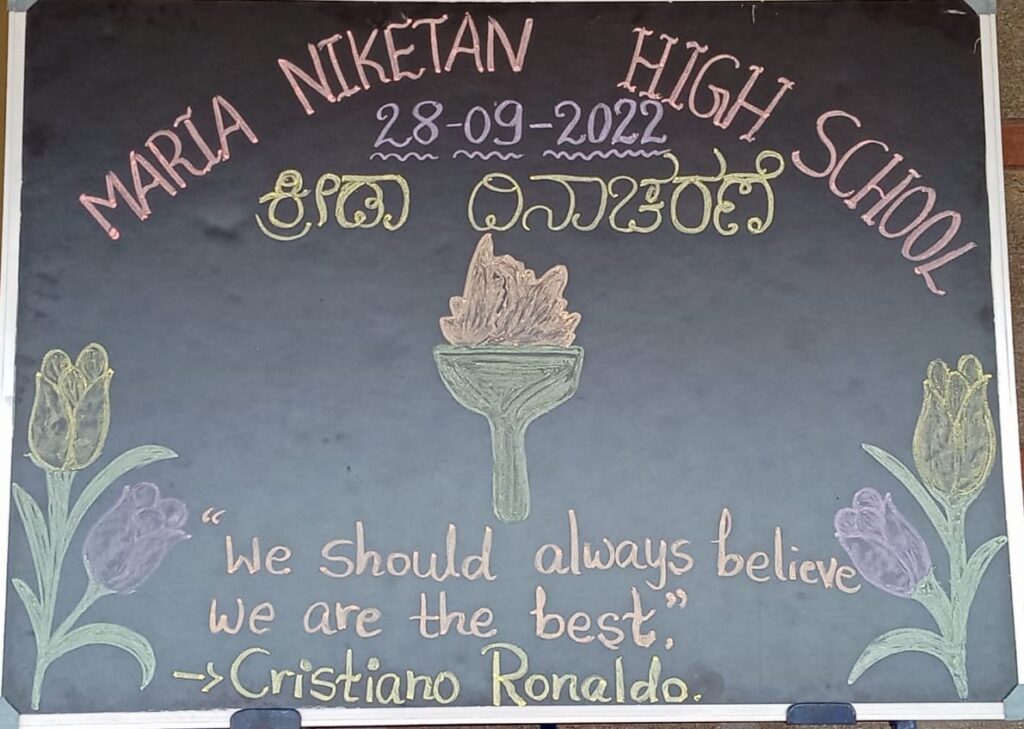 MARIA NIKETAN HIGH SCHOOL
28-09-2022
ಕ್ರೀಡಾ ದಿನಾಚರಣೆ
"We should always believe
we are the best",
->Cristiano Ronaldo.